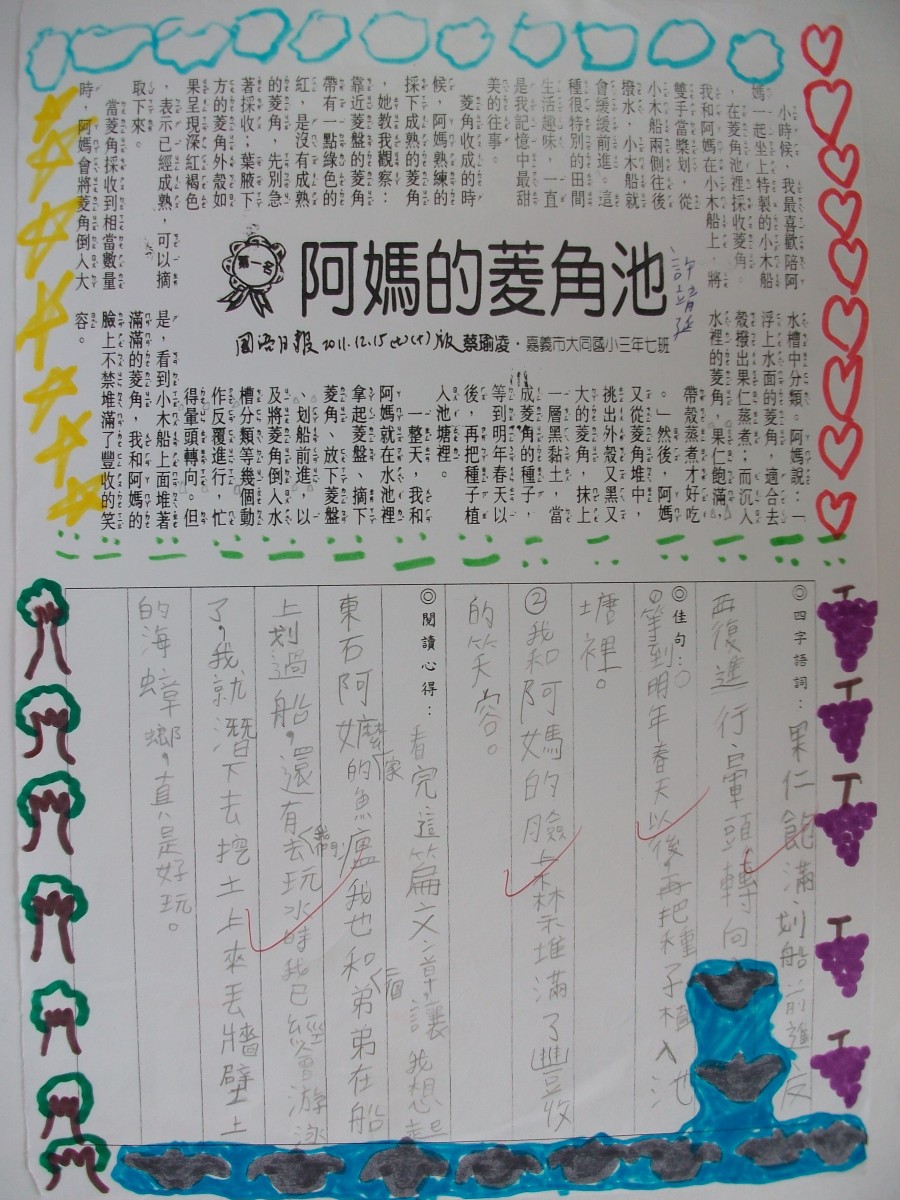 阿媽的菱角池
第一名
許靖延
國語日報 2011.12.15(七)(7)版
蔡瑜凌・嘉義市大同國小三年七班
小時候，我最喜歡陪阿
媽一起坐上特製的小木船
，在菱角池裡採收菱角。
我和阿媽在小木船上，將
雙手當槳划，從
小木船兩側往後
撥水，小木船就
會緩緩前進。這
種很特別的田間
生活趣味，一直
是我記憶中最甜
美的往事。
菱角收成的時
候，阿媽熟練的
採下成熟的菱角
，她教我觀察：
靠近菱盤的菱角
帶有一點綠色的
紅，是沒有成熟
的菱角，先別急
著採收；葉腋下
方的菱角外殼如
果呈現深紅褐色
，表示已經成熟，可以摘
取下來。
當菱角採收到相當數量
時，阿媽會將菱角倒入大
水槽中分類。阿媽說：「
浮上水面的菱角，適合去
殼撥出果仁蒸煮；而沉入
水裡的菱角，果仁飽滿，
帶殼蒸煮才好吃
。」然後，阿媽
又從菱角堆中，
挑出外殼又黑又
大的菱角，抹上
一層黑黏土，當
成菱角的種子，
等到明年春天以
後，再把種子植
入池塘裡。
一整天，我和
阿媽就在水池裡
拿起菱盤、摘下
菱角、放下菱盤
、划船前進，以
及將菱角倒入水
槽分類等幾個動
作反覆進行，忙
得暈頭轉向。但
是，看到小木船上面堆著
滿滿的菱角，我和阿媽的
臉上不禁堆滿了豐收的笑
容。
◎四字語詞：果仁飽滿、划船前進、反
再復進行、暈頭轉向
◎佳句：①等到明年春天以後，再把種子植入池
塘裡。
②我和阿媽的臉上不禁堆滿了豐收
的笑容。
◎閱讀心得：看完這篇文章讓我想起
東石阿嬤家的魚塭我也和二個弟弟在船
上划過船，還有我們去玩水時我已經會游泳
了，我就潛下去挖土上來丟牆壁上
的海蟑螂，真是好玩。